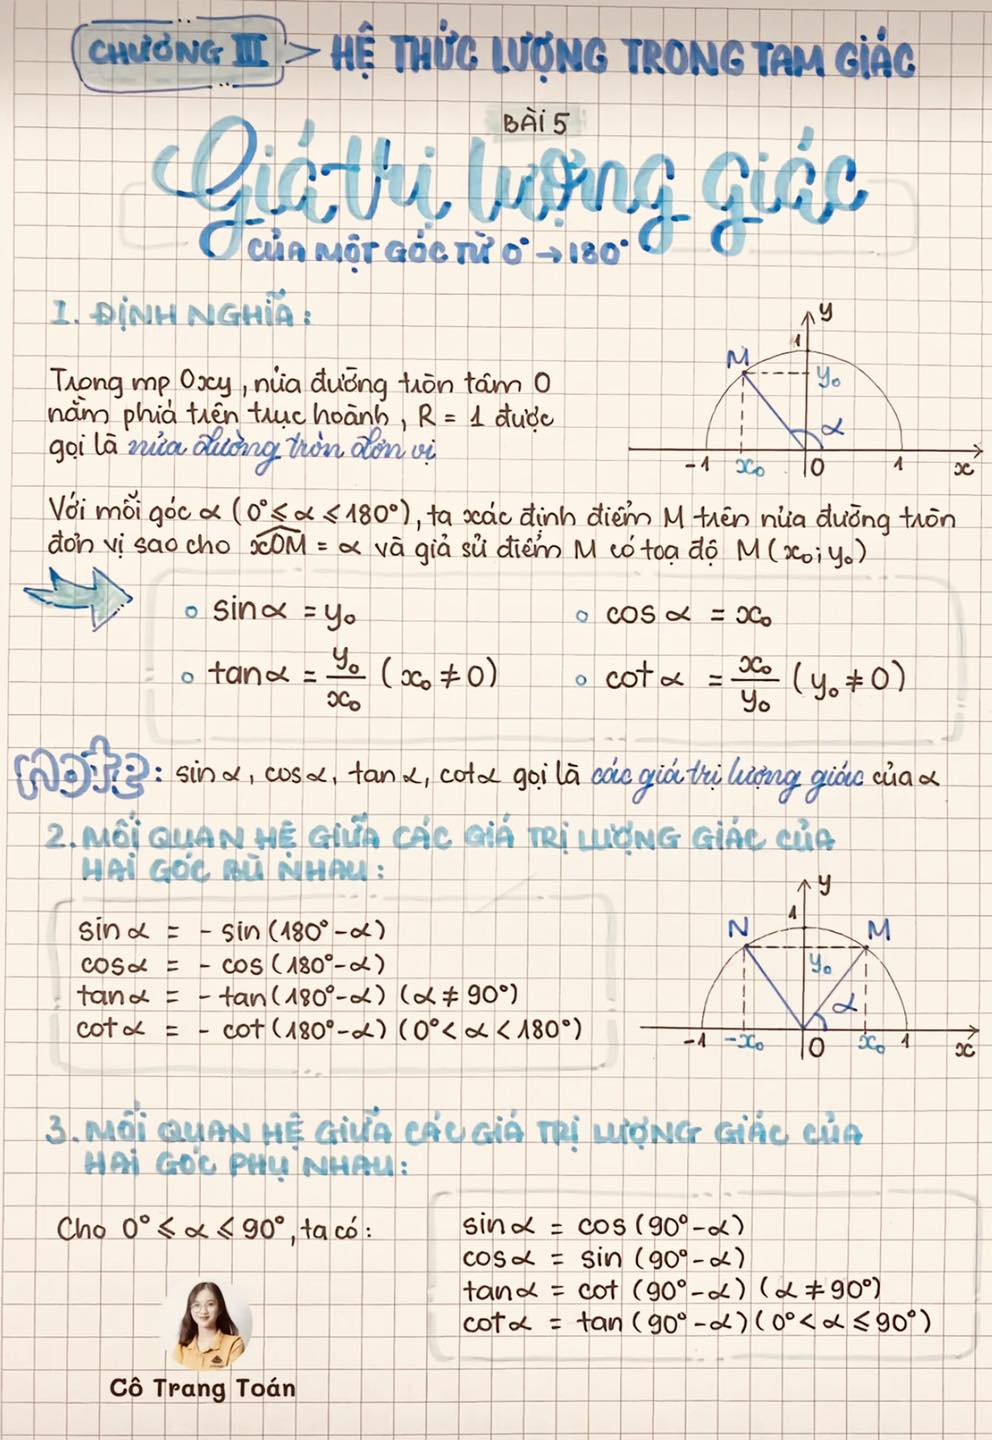 CHƯƠNG III HỆ THỨC LƯỢNG TRONG TAM GIÁC
BÀI 5
Giá trị lượng giác
CỦA MỘT GÓC TỪ 0° → 180°
1. ĐỊNH NGHĨA:
Trong mp Oxy, nửa đường tròn tâm O
nằm phía trên trục hoành, R = 1 được
gọi là nửa đường tròn đơn vị
y
1
M
y₀
α
-1 x₀ O 1 x
Với mỗi góc α (0° ≤ α ≤ 180°), ta xác định điểm M trên nửa đường tròn
đơn vị sao cho xOM = α và giả sử điểm M có toạ độ M(x₀; y₀)
sin α = y₀ cos α = x₀
tan α = y₀/x₀ (x₀ ≠ 0) cot α = x₀/y₀ (y₀ ≠ 0)
Note: sin α, cos α, tan α, cot α gọi là các giá trị lượng giác của α
2. MỐI QUAN HỆ GIỮA CÁC GIÁ TRỊ LƯỢNG GIÁC CỦA
HAI GÓC BÙ NHAU:
sin α = - sin (180° - α)
cos α = - cos (180° - α)
tan α = - tan (180° - α) (α ≠ 90°)
cot α = - cot (180° - α) (0° < α < 180°)
y
1
N M
y₀
α
-1 -x₀ O x₀ 1 x
3. MỐI QUAN HỆ GIỮA CÁC GIÁ TRỊ LƯỢNG GIÁC CỦA
HAI GÓC PHỤ NHAU:
Cho 0° ≤ α ≤ 90°, ta có:
sin α = cos (90° - α)
cos α = sin (90° - α)
tan α = cot (90° - α) (α ≠ 90°)
cot α = tan (90° - α) (0° < α ≤ 90°)
Cô Trang Toán